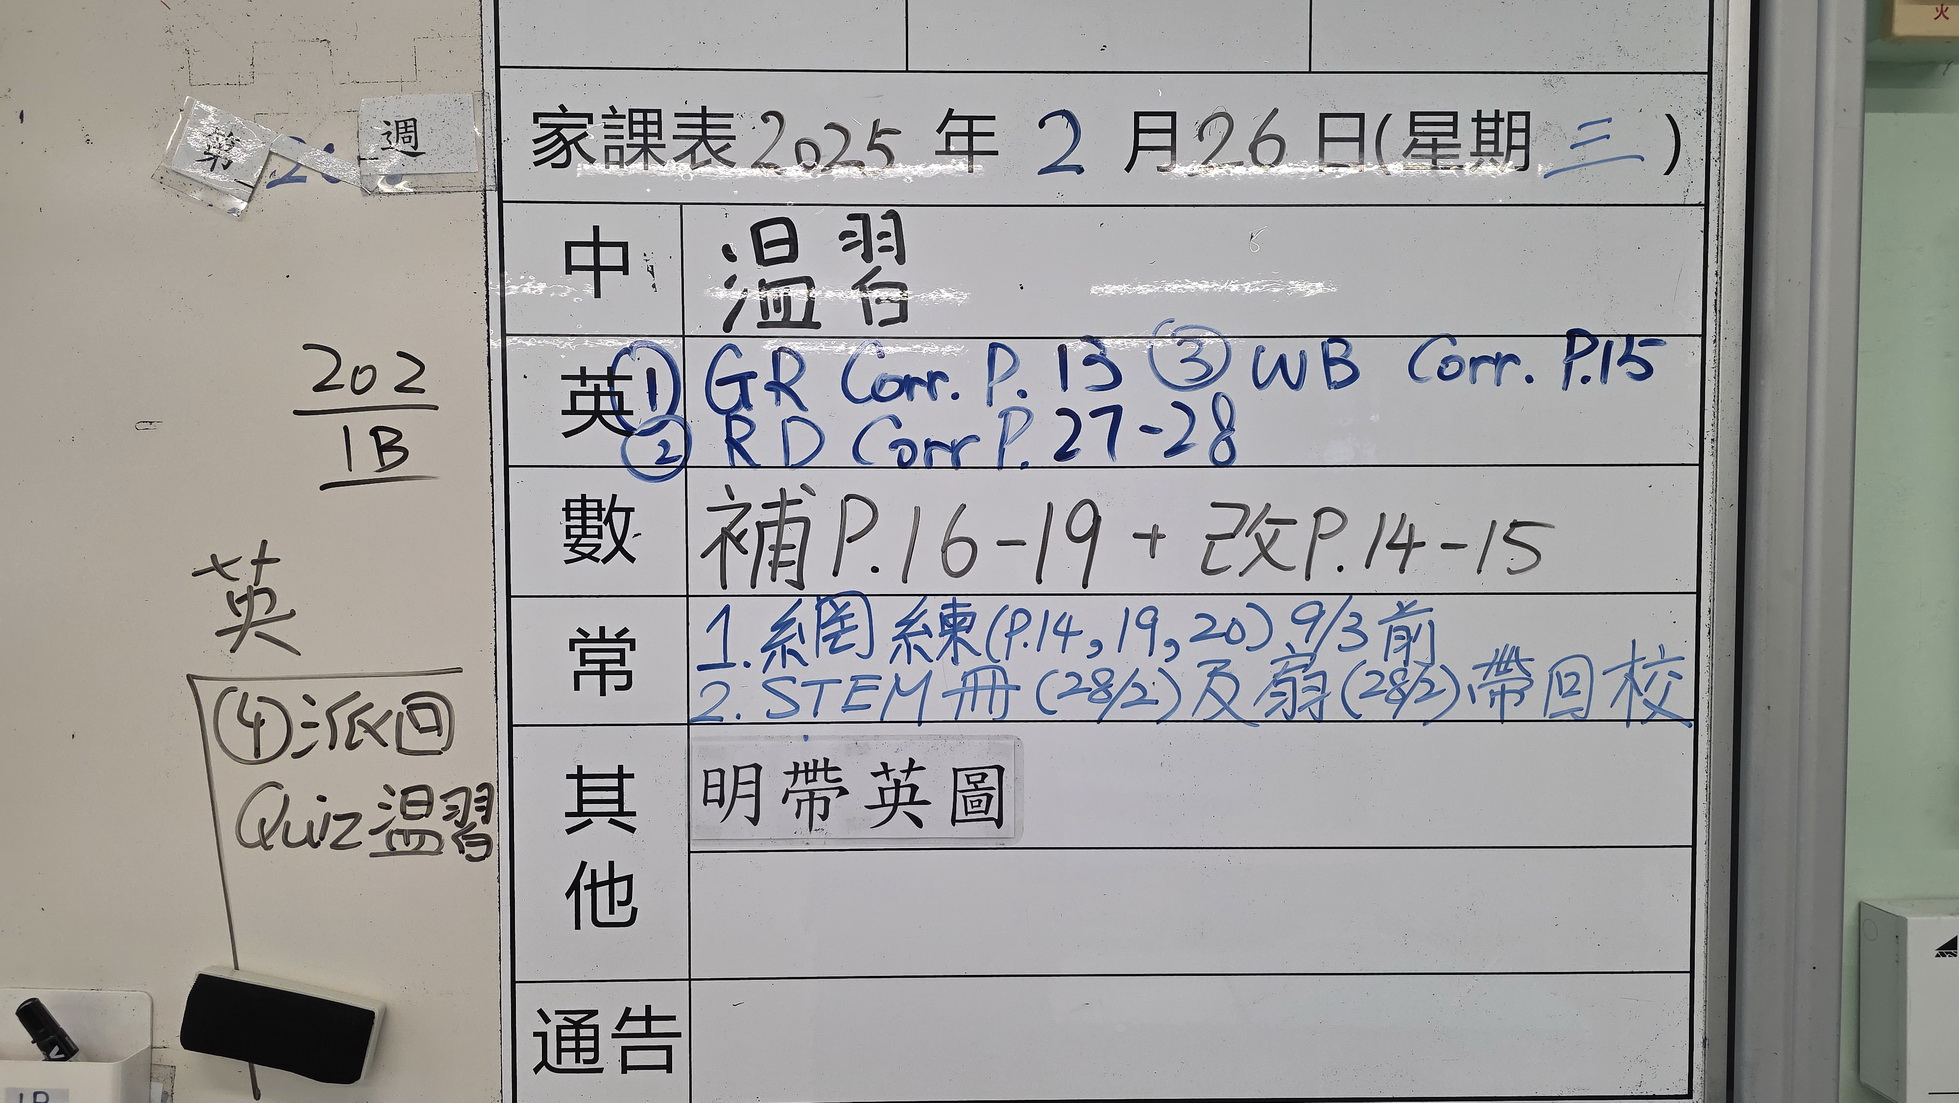 火
家課表2025年2月26日(星期三)
第20週
中 溫習
英 ① GR Corr. P. 13 ③ WB Corr. P.15
② RD Corr P. 27-28
數 補P.16-19 + 改P.14-15
常 1. 網練(P.14,19,20) 9/3前
2. STEM冊(28/2)及扇(28/2)帶回校
其他 明帶英圖
通告
202
1B
英
④派回
Quiz溫習
1B